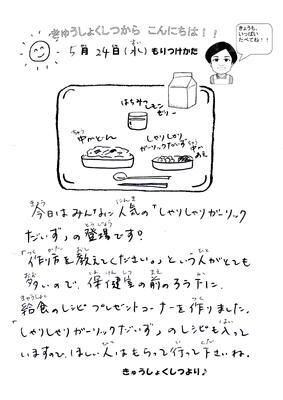 きゅうしょくしつから こんにちは！！
きょうも、
いっぱい
たべてね！！
5月24日(水) もりつけかた
はちみつレモン
ゼリー
中かどん
しゃりしゃり
ガーリックだいず
中かあえ
今日はみんなに人気の「しゃりしゃりガーリック
だいず」の登場です！
「作り方を教えてください。」という人がとても
多いので、保健室の前のろう下に、
給食のレシピプレゼントコーナーを作りました。
「しゃりしゃりガーリックだいず」のレシピも入って
いますので、ほしい人はもらって行って下さいね。
きゅうしょくしつより♪